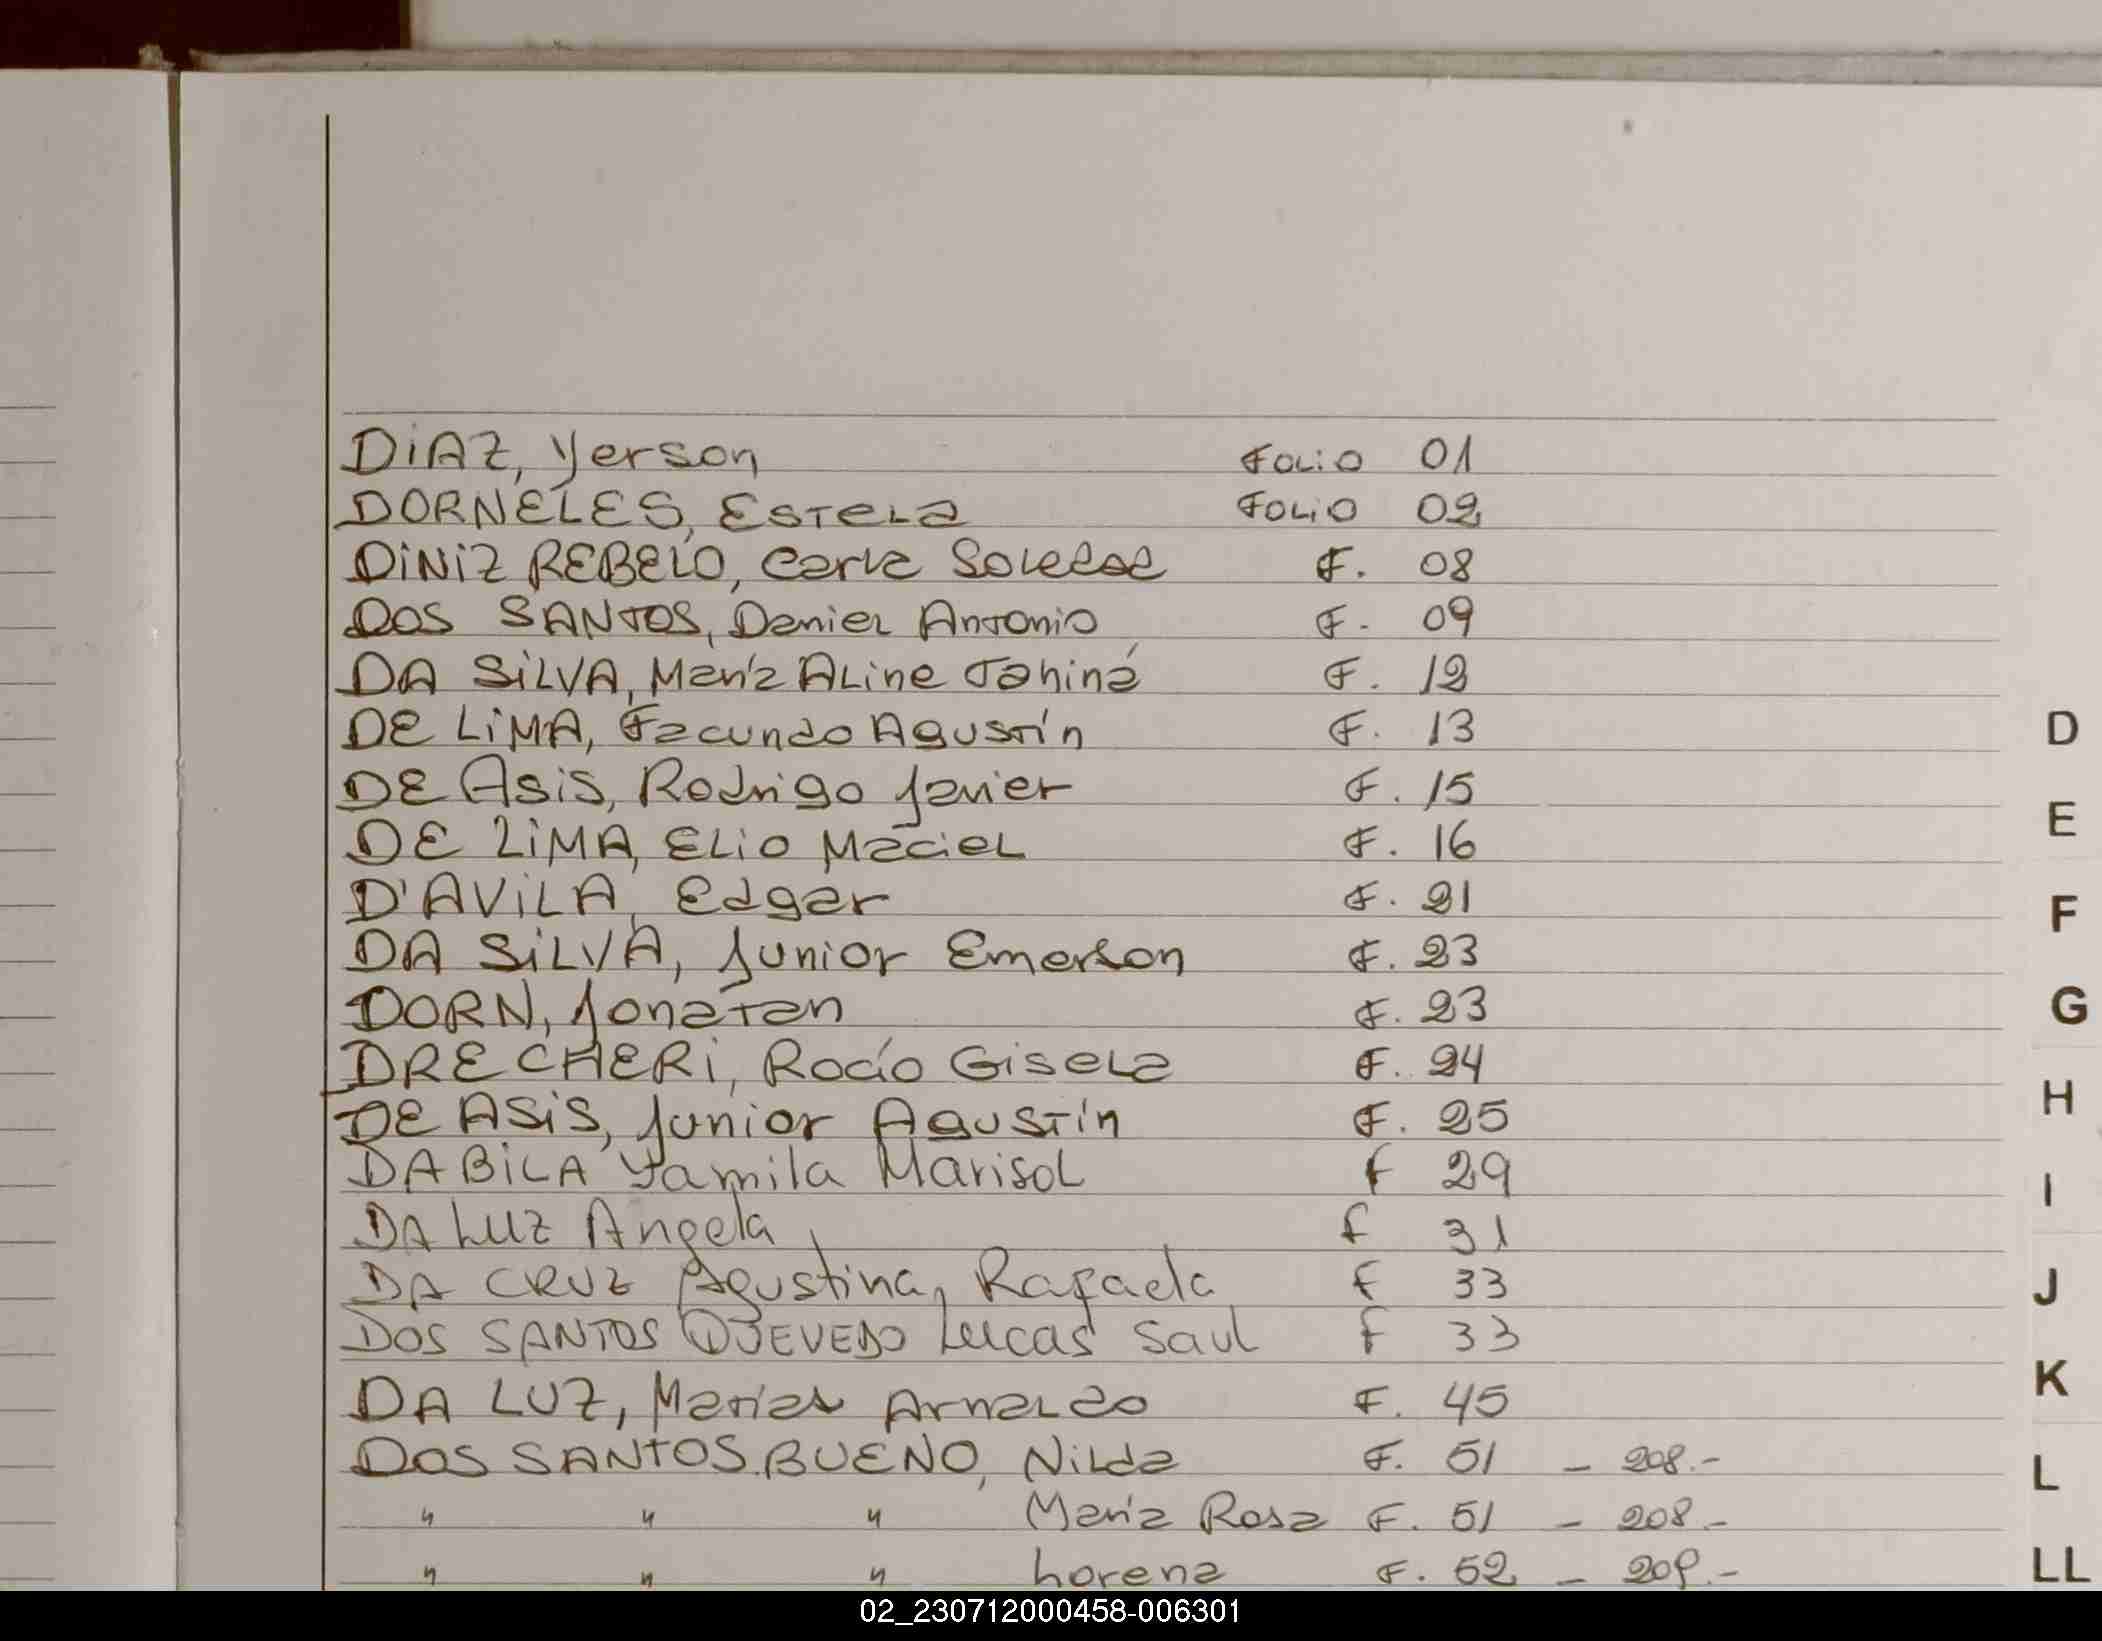 DIAZ, Yerson Folio 01
DORNELES, Estela Folio 02
DINIZ REBELO, Carla Soledad F. 08
DOS SANTOS, Daniel Antonio F. 09
DA SILVA, María Aline Tahiná F. 12
DE LIMA, Facundo Agustín F. 13
DE ASIS, Rodrigo Javier F. 15
DE LIMA, Elio Maciel F. 16
D'AVILA, Edgar F. 21
DA SILVA, Junior Emerson F. 23
DORN, Jonatan F. 23
DRECHERI, Rocío Gisela F. 24
DE ASIS, Junior Agustín F. 25
DABILA Yamila Marisol f 29
DA LUZ Angela f 31
DA CRUZ Agustina, Rafaela f 33
DOS SANTOS QUEVEDO Lucas Saul f 33
DA LUZ, Matías Arnaldo F. 45
DOS SANTOS BUENO, Nilda F. 51 - 208.-
" " " María Rosa F. 51 - 208.-
" " " Lorena F. 52 - 209.-
D
E
F
G
H
I
J
K
L
LL
02_230712000458-006301